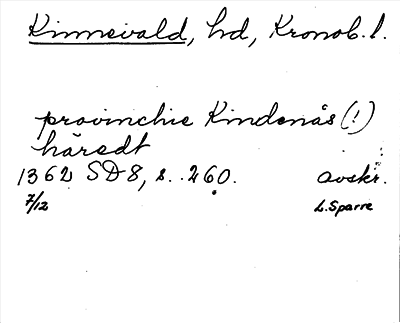 Kinnevald, hd, Kronob. l.
provinchie Kindenås (!)
häredt
1362 SD 8, s. 260. avskr.
7/12 L. Sparre